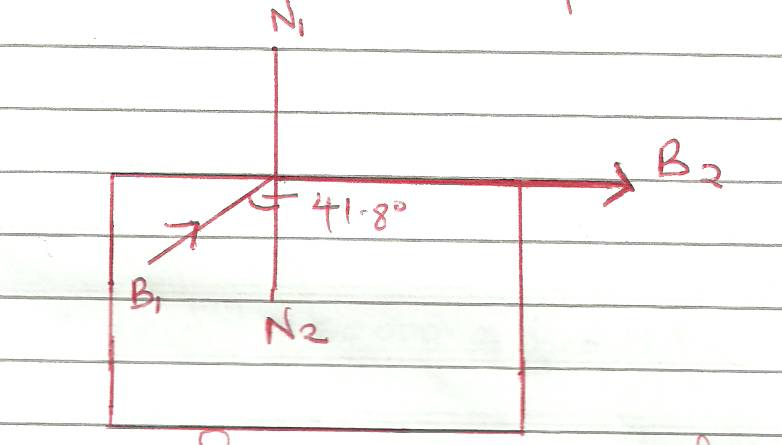 N₁
B₂
41.8°
B₁
N₂